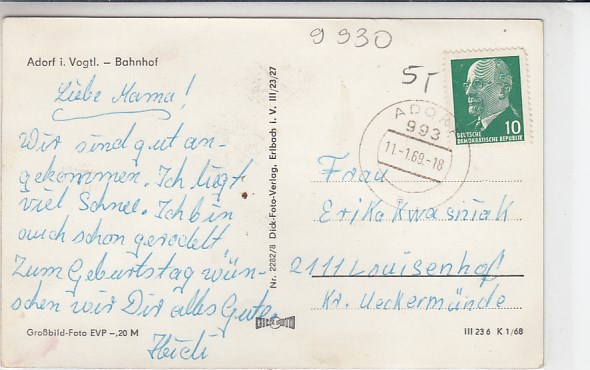 9930
5T
Adorf i. Vogtl. – Bahnhof
Liebe Mama!
Wir sind gut an-
gekommen. Ich liegt
viel Schnee. Ich bin
auch schon gerodelt
Zum Geburtstag wün-
schen wir Dir alles Gute.
Heidi
Großbild-Foto EVP –,20 M
Nr. 2282/8 Dick-Foto-Verlag, Erlbach i. V. III/23/27
DICK FOTO
ADORF
993
11.-1.69.-18
DEUTSCHE
DEMOKRATISCHE REPUBLIK
10
Frau
Erika Kwasniak
2111 Louisenhof
Kr. Ueckermünde
III 23 6 K 1/68